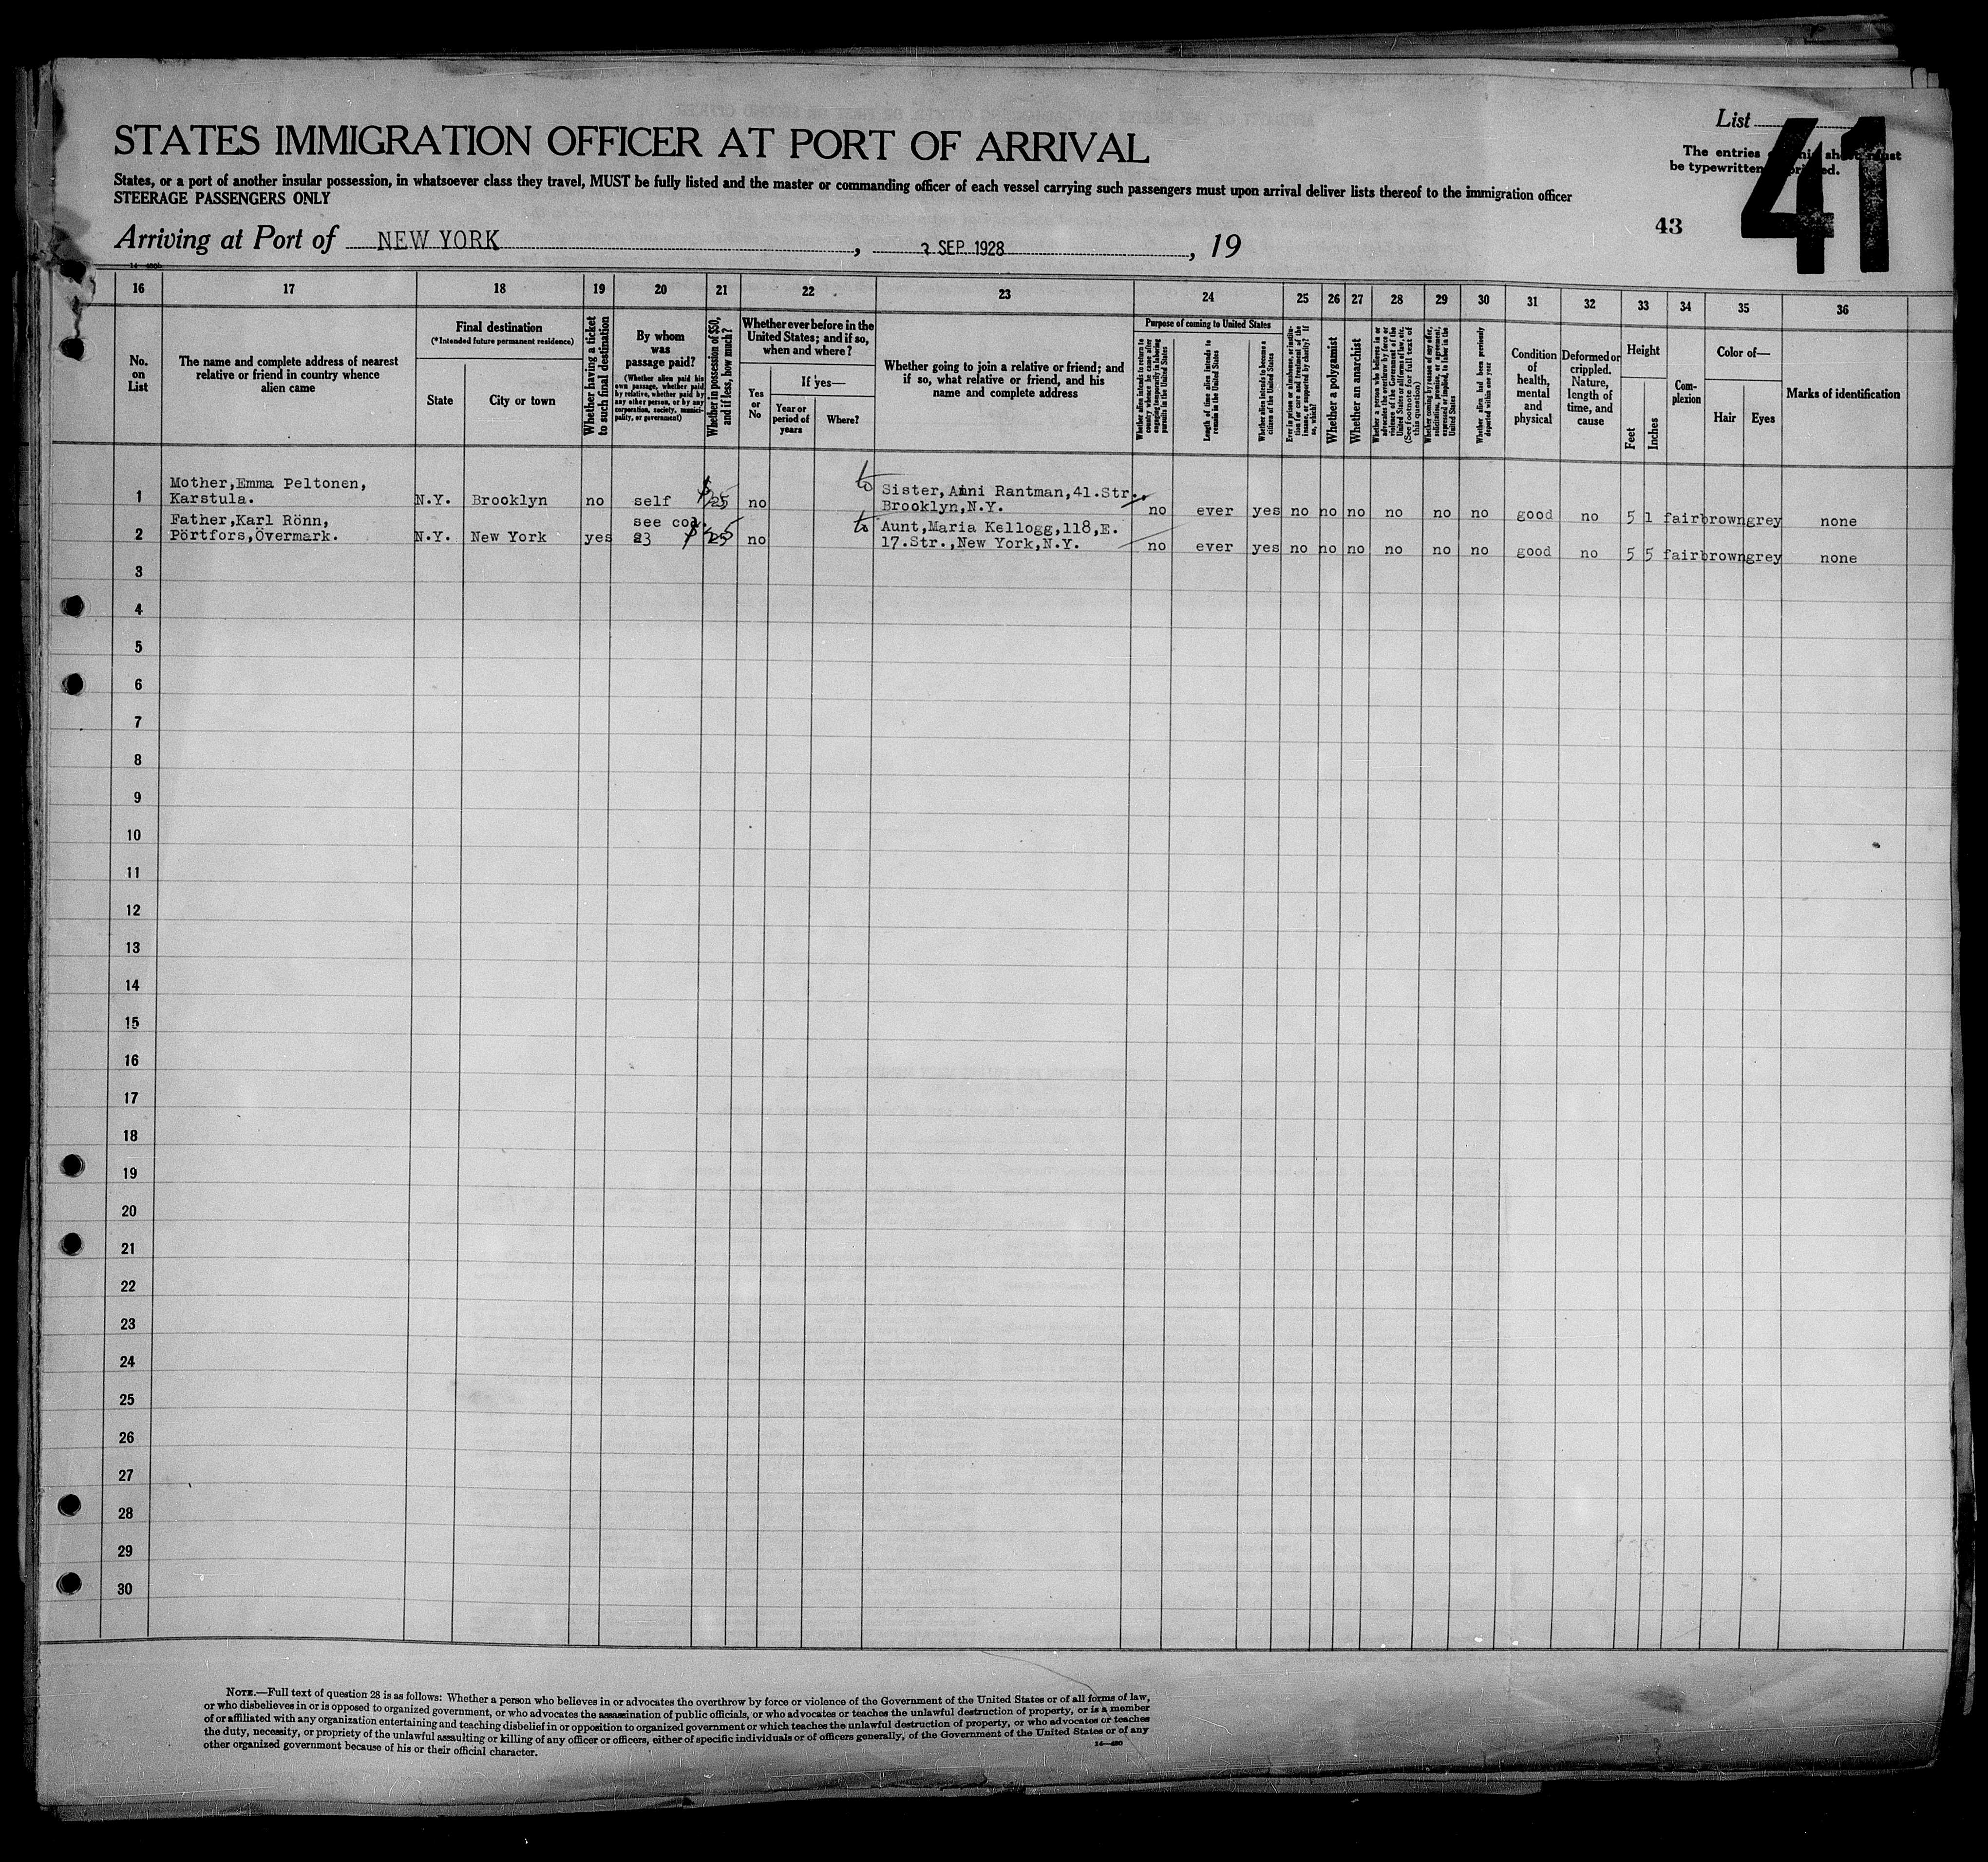 STATES IMMIGRATION OFFICER AT PORT OF ARRIVAL
List
41
The entries sheet must
be typewritten
States, or a port of another insular possession, in whatsoever class they travel, MUST be fully listed and the master or commanding officer of each vessel carrying such passengers must upon arrival deliver lists thereof to the immigration officer
STEERAGE PASSENGERS ONLY
43
Arriving at Port of NEW YORK, SEP 1928, 19
16 17 18 19 20 21 22 23 24 25 26 27 28 29 30 31 32 33 34 35 36
No. on List
The name and complete address of nearest relative or friend in country whence alien came
Final destination
(*Intended future permanent residence)
State
City or town
Whether having a ticket to such final destination
By whom was passage paid?
(Whether alien paid his own passage, whether paid by relative, whether paid by any other person, or by any corporation, society, municipality, or government)
Whether in possession of $50, and if less, how much?
Whether ever before in the United States; and if so, when and where?
Yes or No
If yes—
Year or period of years
Where?
Whether going to join a relative or friend; and if so, what relative or friend, and his name and complete address
Purpose of coming to United States
Whether alien intends to return to country whence he came after engaging temporarily in laboring pursuits in the United States
Length of time alien intends to remain in the United States
Whether alien intends to become a citizen of the United States
Ever in prison or almshouse, or institution for care and treatment of the insane, or supported by charity? If so, which?
Whether a polygamist
Whether an anarchist
Whether a person who believes in or advocates the overthrow by force or violence of the Government of the United States or all forms of law, etc. (See footnote for full text of this question)
Whether coming by reason of any offer, solicitation, promise, or agreement, expressed or implied, to labor in the United States
Whether alien had been previously deported within one year
Condition of health, mental and physical
Deformed or crippled. Nature, length of time, and cause
Height
Feet
Inches
Complexion
Color of—
Hair
Eyes
Marks of identification
1 Mother,Emma Peltonen, Karstula. N.Y. Brooklyn no self $25 no to Sister, Aini Rantman,41.Str., Brooklyn,N.Y. no ever yes no no no no no no good no 5 1 fair brown grey none
2 Father,Karl Rönn, Pörtfors,Övermark. N.Y. New York yes see col. 23 $25 no to Aunt,Maria Kellogg,118,E. 17.Str.,New York,N.Y. no ever yes no no no no no no good no 5 5 fair brown grey none
3
4
5
6
7
8
9
10
11
12
13
14
15
16
17
18
19
20
21
22
23
24
25
26
27
28
29
30
NOTE.—Full text of question 28 is as follows: Whether a person who believes in or advocates the overthrow by force or violence of the Government of the United States or of all forms of law,
or who disbelieves in or is opposed to organized government, or who advocates the assassination of public officials, or who advocates or teaches the unlawful destruction of property, or is a member
of or affiliated with any organization entertaining and teaching disbelief in or opposition to organized government or which teaches the unlawful destruction of property, or who advocates or teaches
the duty, necessity, or propriety of the unlawful assaulting or killing of any officer or officers, either of specific individuals or of officers generally, of the Government of the United States or of any
other organized government because of his or their official character.
14—480